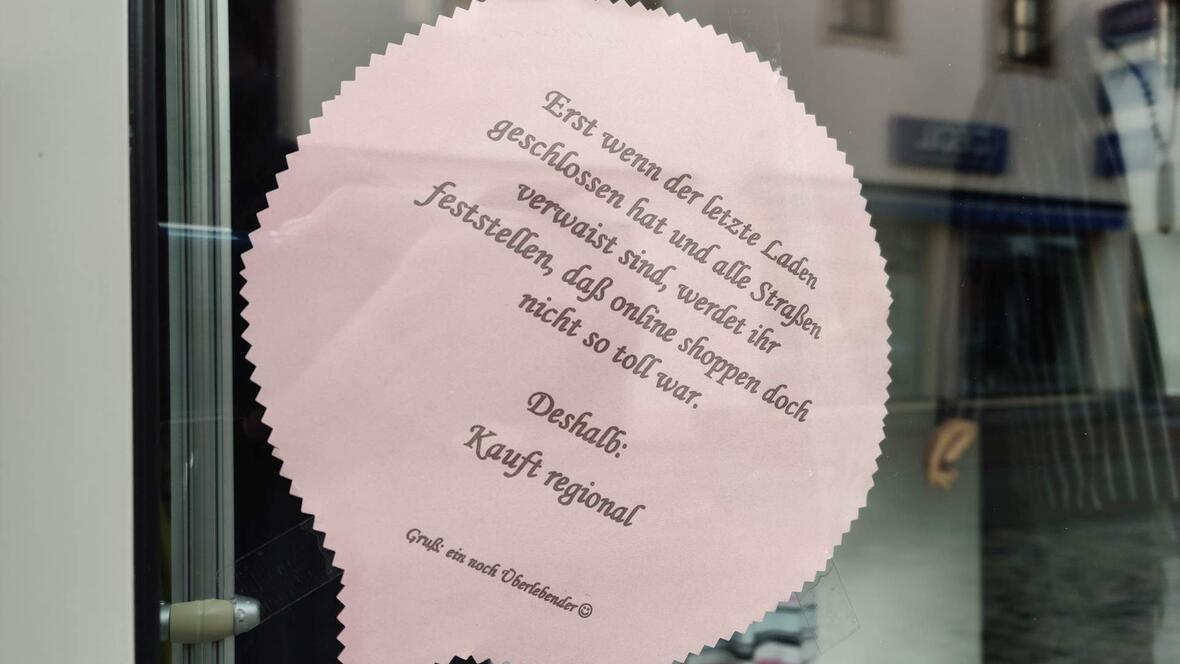 Erst wenn der letzte Laden
geschlossen hat und alle Straßen
verwaist sind, werdet ihr
feststellen, daß online shoppen doch
nicht so toll war.
Deshalb:
Kauft regional
Gruß: ein noch Überlebender☺